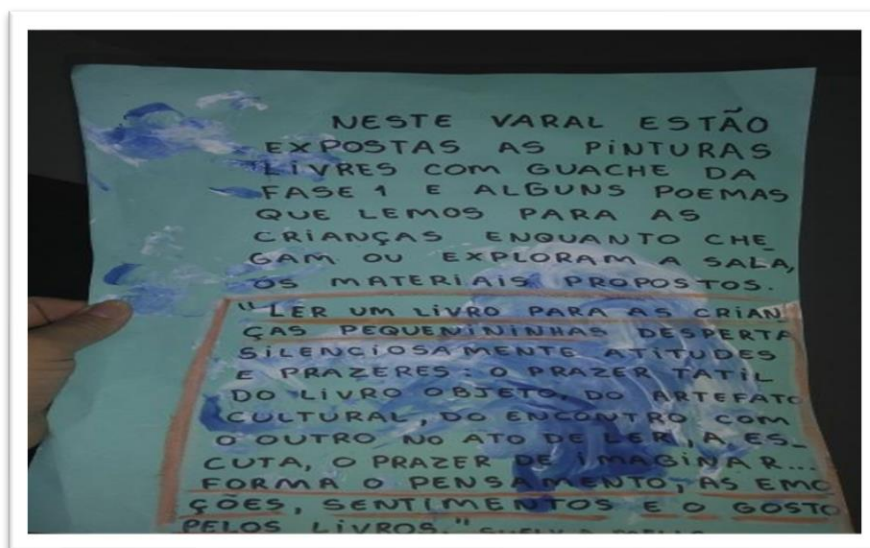 NESTE VARAL ESTÃO
EXPOSTAS AS PINTURAS
LIVRES COM GUACHE DA
FASE 1 E ALGUNS POEMAS
QUE LEMOS PARA AS
CRIANÇAS ENQUANTO CHE
GAM OU EXPLORAM A SALA,
OS MATERIAIS PROPOSTOS.
"LER UM LIVRO PARA AS CRIAN
ÇAS PEQUENININHAS DESPERTA
SILENCIOSAMENTE ATITUDES
E PRAZERES: O PRAZER TATIL
DO LIVRO OBJETO, DO ARTEFATO
CULTURAL, DO ENCONTRO COM
O OUTRO NO ATO DE LER, A ES_
CUTA, O PRAZER DE IMAGINAR...
FORMA O PENSAMENTO, AS EMO
ÇÕES, SENTIMENTOS E O GOSTO
PELOS LIVROS."